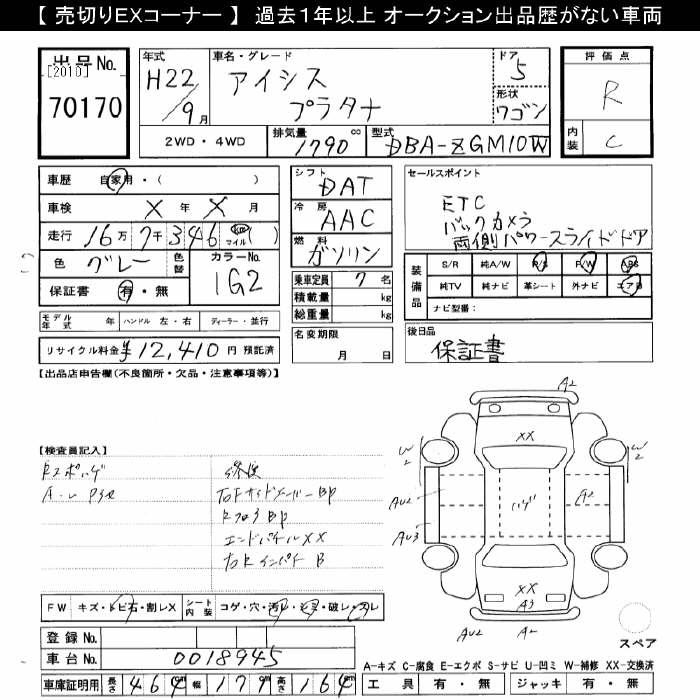 【 売切りEXコーナー 】 過去1年以上 オークション出品歴がない車両
出品No. [2010] 70170
年式 H22/9月
車名・グレード アイシス プラタナ
ドア 5
形状 ワゴン
評価点 R
内装 C
2WD・4WD 排気量 1790cc 型式 DBA-ZGM10W
車歴 自家用・( )
車検 X 年 X 月
走行 16万7千346 km マイル ( )
色 グレー 色替 カラーNo. 1G2
保証書 有・無
シフト DAT
冷房 AAC
燃料 ガソリン
乗車定員 7 名
積載量 kg
総重量 kg
セールスポイント
ETC
バックカメラ
両側パワースライドドア
装備品 S/R 純A/W P/S P/W ABS
純TV 純ナビ 革シート 外ナビ エアB
ナビ型番:
モデル年式 年 ハンドル 左・右 ディーラー・並行
リサイクル料金 ¥12,410 円 預託済
名変期限 月 日
後日品 保証書
【出品店申告欄(不良箇所・欠品・注意事項等)】
【検査員記入】
修復
エンドパネルXX
A2
XX
W2 W2
AU2 ハゲ A2
AU3
XX
A3
AU2 A2
スペア
FW キズ・トビ石・割レX シート内装 コゲ・穴・汚レ・シミ・破レ・スレ
登録No.
車台No. 0018945
車庫証明用 長さ 464 幅 179 高さ 164
A-キズ C-腐食 E-エクボ S-サビ U-凹ミ W-補修 XX-交換済
工具 有・無 ジャッキ 有・無